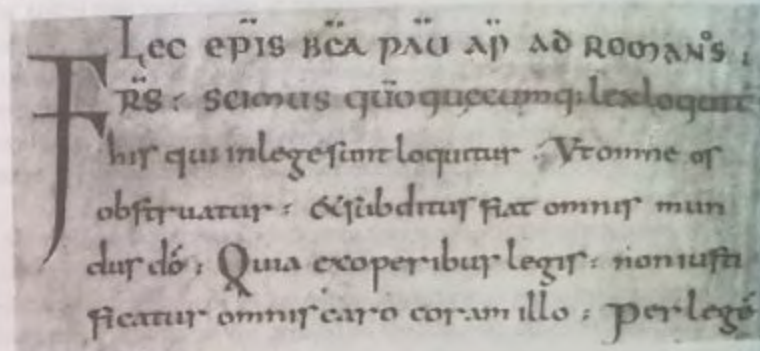 Lec epis bca pau ap ad romans.
FRS: scimus qūo quęcumq; lex loquit
his qui inlege sunt loquitur. Vt omne os
obstruatur: & subditus fiat omnis mun
dus dō; Quia exoperibus legis: non iusti
ficatur omnis caro coram illo: per legē